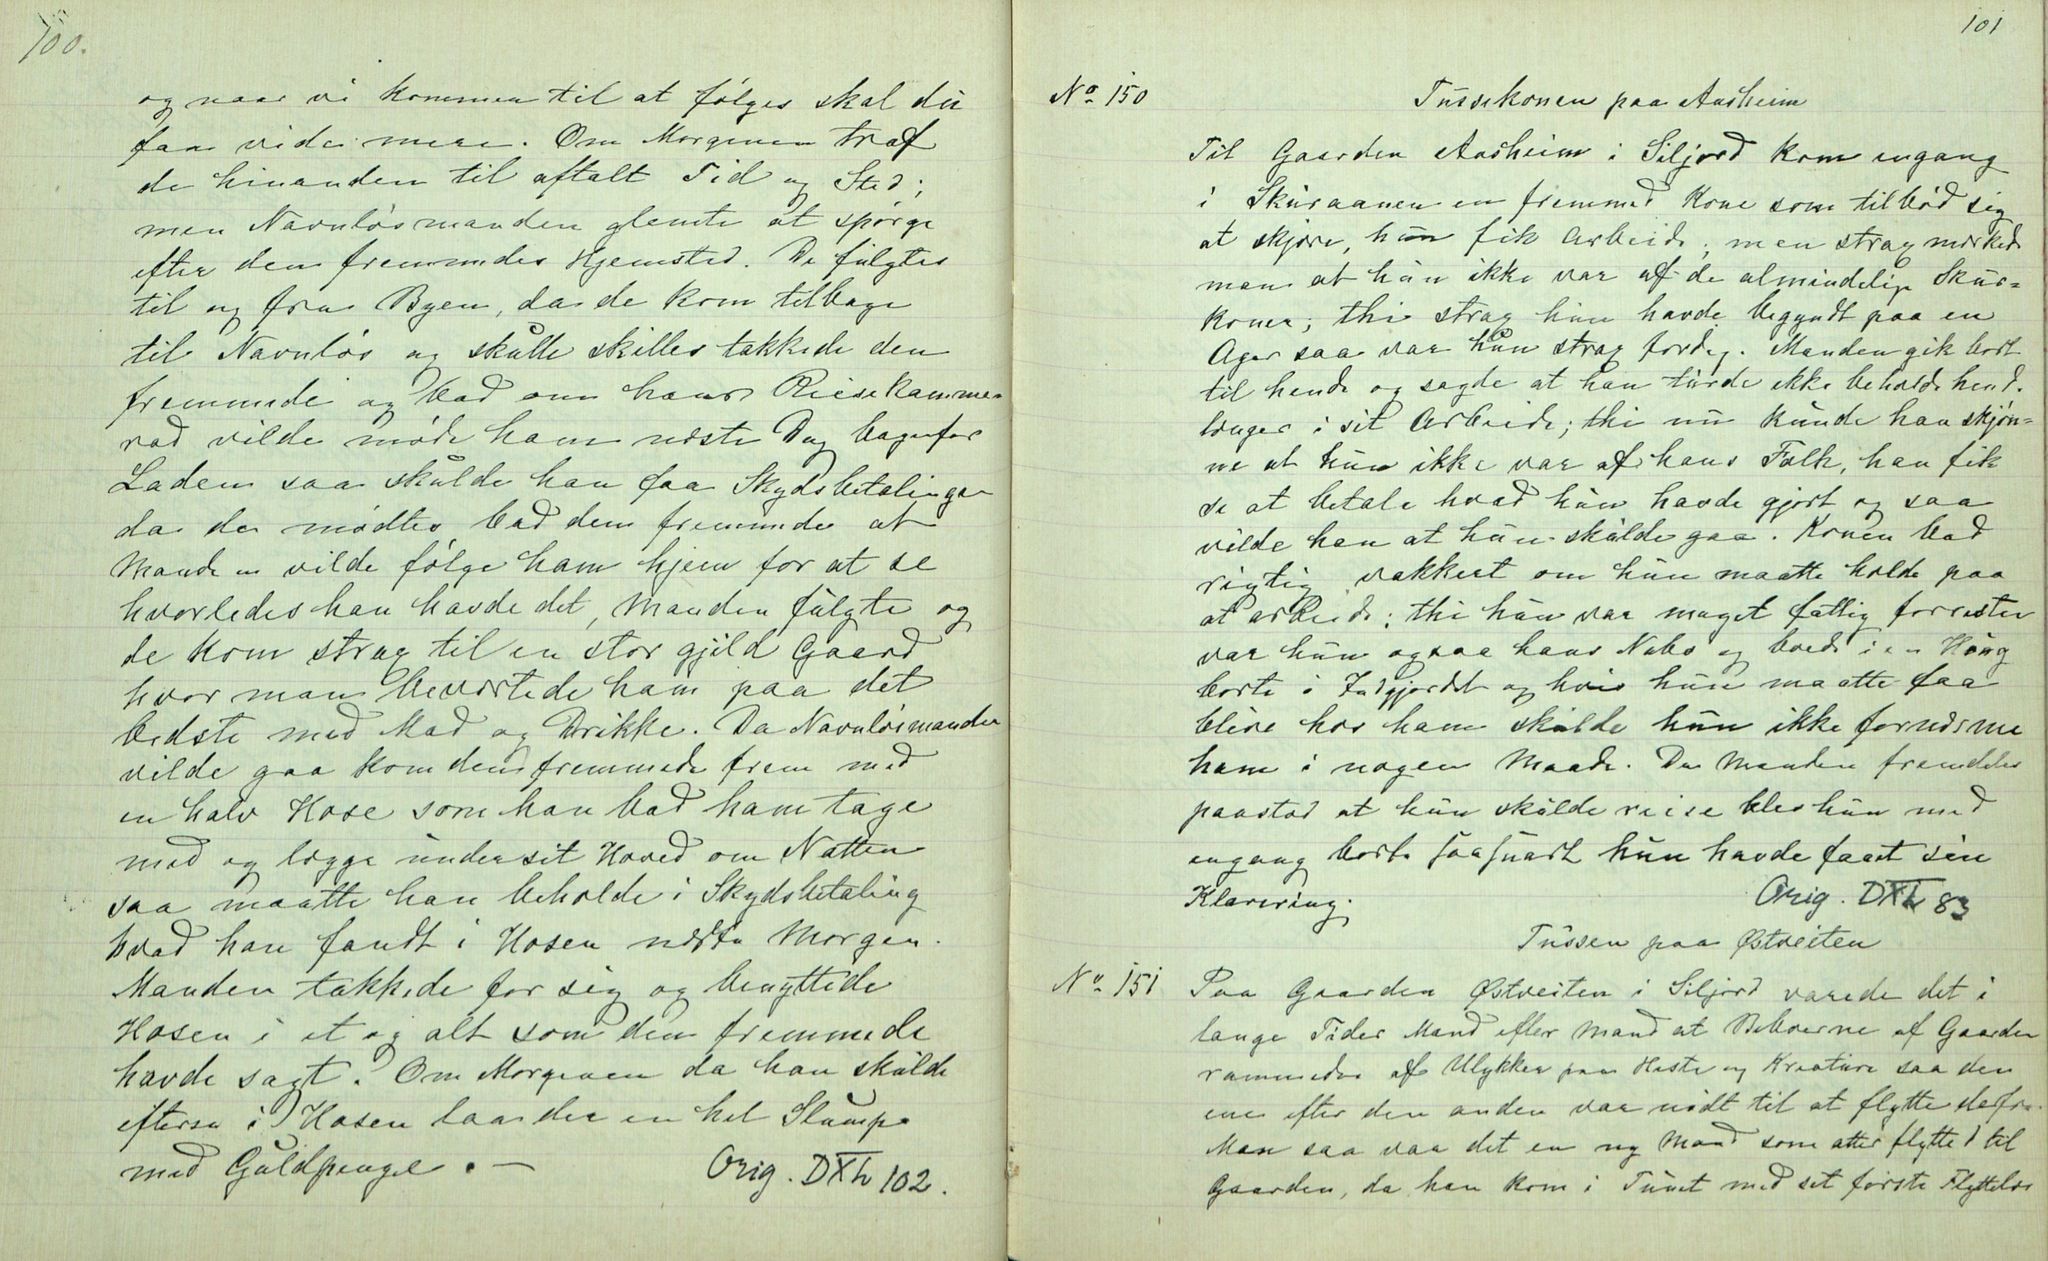 100.
og naar vi kommer til at følges skal du
faa vide mere. Om Morgenen traf
de hinanden til aftalt Tid og Sted;
men Navnløsmanden glemte at spørge
efter den fremmedes Hjemsted. De fulgtes
til og fra Byen, da de kom tilbage
til Navnløs og skulle skilles takkede den
fremmede og bad om hans Reisekamme-
rad vilde møde ham næste Dag bagenfor
Laden saa skulde han faa Skydsbetalingen
da de mødtes bad den fremmede at
Manden vilde følge ham hjem for at se
hvorledes han havde det, Manden fulgte og
de kom strax til en stor gjild Gaard
hvor man beværtede ham paa det
bedste med Mad og Drikke. Da Navnløsmanden
vilde gaa kom den fremmede frem med
en halv Hose som han bad ham tage
med og lægge under sit Hoved om Natten
saa maatte han beholde i Skydsbetaling
hvad han fandt i Hosen næste Morgen.
Manden takkede for sig og benyttede
Hosen i et og alt som den fremmede
havde sagt. Om Morgenen da han skulde
efterse i Hosen laa der en hel Slump
med Guldpenge. —
Orig. DXL 102.
101
No 150
Tussekonen paa Aasheim
Til Gaarden Aasheim i Siljord kom engang
i Skuraanen en fremmed Kone som tilbød sig
at skjære, hun fik Arbeide, men strax mærked
man at hun ikke var af de almindelige Skur-
koner; thi strax hun havde begyndt paa en
Ager saa var hun strax færdig. Manden gik bort
til hende og sagde at han turde ikke beholde hende
længer i sit Arbeide; thi nu kunde han skjøn-
ne at hun ikke var af hans Folk, han fik
se at betale hvad hun havde gjort og saa
vilde han at hun skulde gaa. Konen bad
rigtig vakkert om hun maatte holde paa
at arbeide; thi hun var meget fattig forresten
var hun ogsaa hans Nabo og boede i en Houg
borte i Indgjordet og hvis hun maatte faa
blive hos ham skulde hun ikke fornærme
ham i nogen Maade. Da Manden fremdeles
paastod at hun skulde reise blev hun med
engang borte saasnart hun havde faaet sin
Klarering.
Orig. DXL 83
Tussen paa Østveiten
No 151
Paa Gaarden Østveiten i Siljord varede det i
lange Tider Mand efter Mand at Beboerne af Gaarden
rammedes af Ulykker paa Heste og Kreature saa den
ene efter den anden var nødt til at flytte derfra.
Men saa var det en ny Mand som atter flytted til
Gaarden, da han kom i Tunet med sit første Flyttelæs